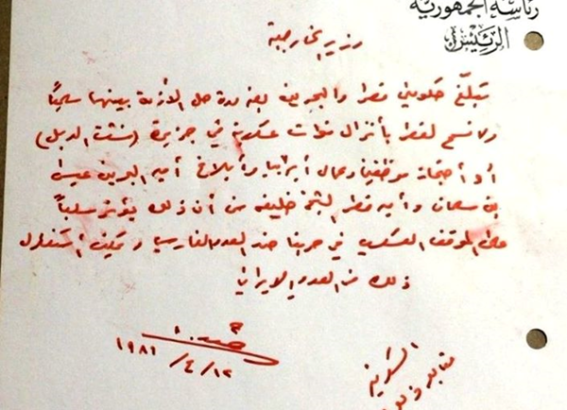 رئاسة الجمهورية
الرئيس
وزير الخارجية
تبلغ حكومتي قطر والبحرين بضرورة حل الأزمة بينهما سلمياً
ولا نسمح لقطر بأنزال قوات عسكرية في جزيرة (فشت الدبل)
أو أحتجاز موظفين وعمال أبرياء وأبلاغ أمير البحرين عيسى
بن سلمان وأمير قطر الشيخ خليفه من أن ذلك يؤثر سلباً
على الموقف العسكري في حربنا ضد العدو الفارسي و يمكن أستغلال
ذلك من العدو الايراني
١٩٨٦ /٤/ ١٢
السكرتير